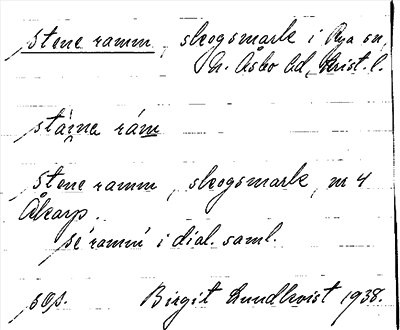 stene ramm, skogsmark i Rya sn,
N. Åsbo hd, Krist. l.
stäine räm
stene ramm, skogsmark, nr 4
Åkarp.
se ramm i dial. saml.
sös. Birgit Lundkvist 1938.